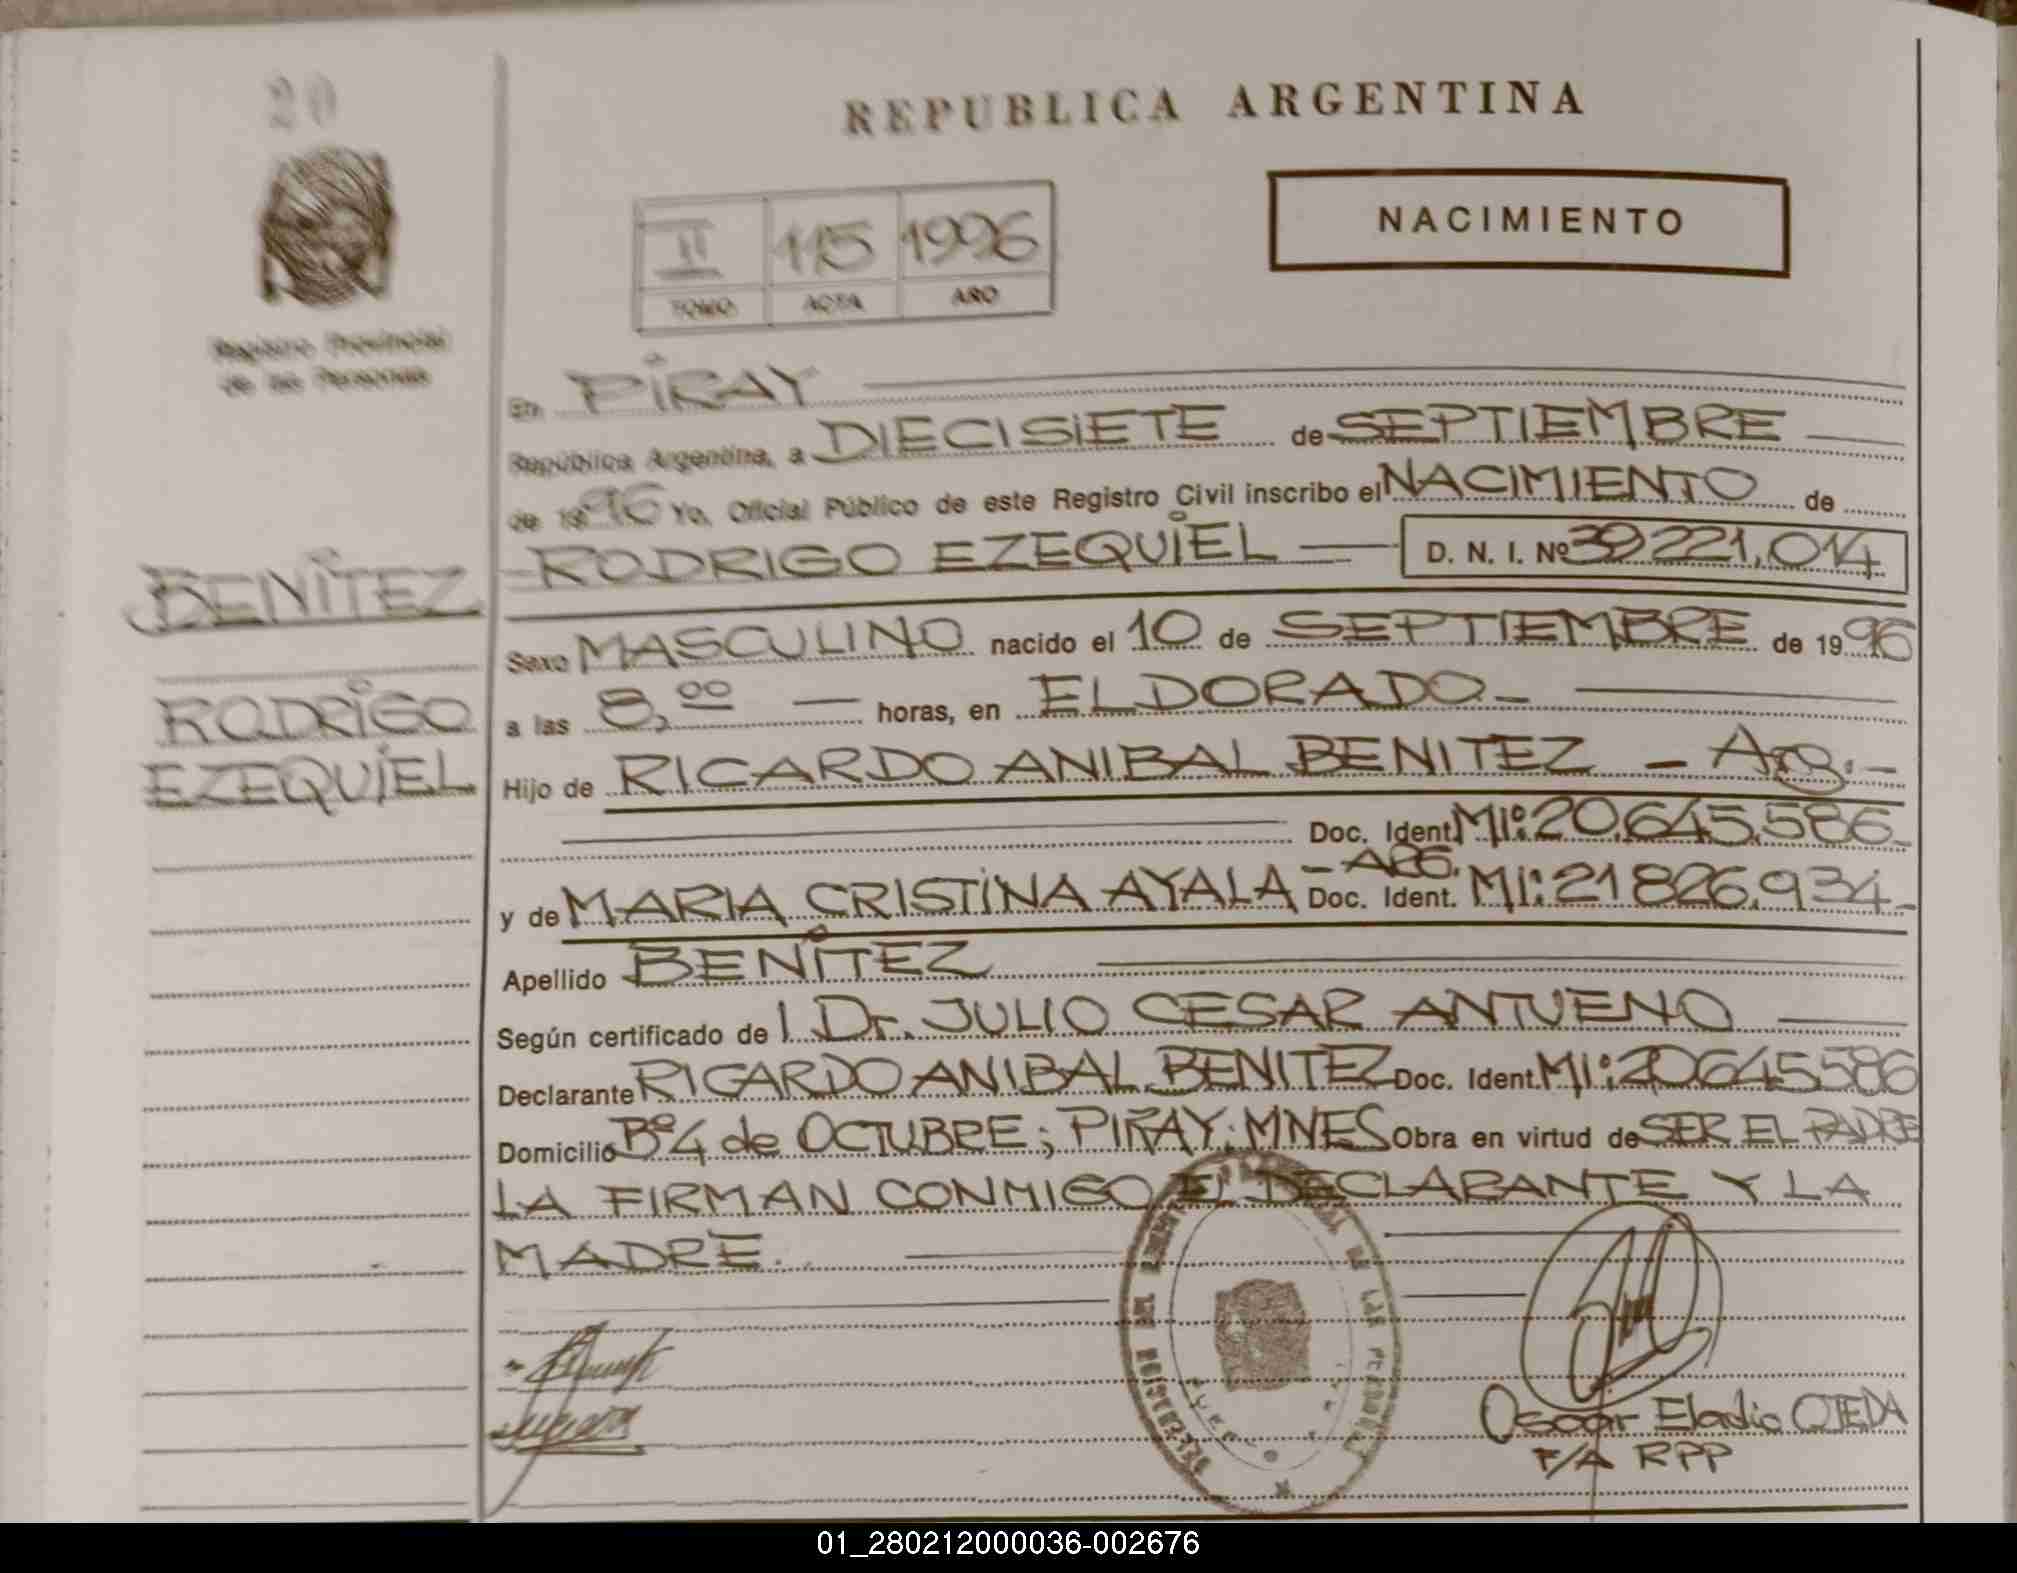 20
REPUBLICA ARGENTINA
NACIMIENTO
II 115 1996
TOMO ACTA AÑO
Registro Provincial
de las Personas
En PiRAY
República Argentina, a DIECISIETE de SEPTIEMBRE
de 1996 Yo, Oficial Público de este Registro Civil inscribo el NACIMIENTO de
RODRIGO EZEQUIEL D. N. I. Nº 39221.014
BENITEZ
RODRIGO
EZEQUIEL
Sexo MASCULINO nacido el 10 de SEPTIEMBRE de 1996
a las 8,00 horas, en ELDORADO
Hijo de RICARDO ANIBAL BENITEZ - Arg. -
Doc. Ident. MI: 20.645.586
y de MARIA CRISTINA AYALA - ARG. Doc. Ident. MI: 21826.934
Apellido BENITEZ
Según certificado de l Dr. JULIO CESAR ANTUENO
Declarante RICARDO ANIBAL BENITEZ Doc. Ident. MI: 20645586
Domicilio Bº 4 de OCTUBRE; PIRAY; MNES Obra en virtud de SER EL PADRE
LA FIRMAN CONMIGO El DECLARANTE Y LA
MADRE.
Oscar Eladio OJEDA
F/A RPP
01_280212000036-002676